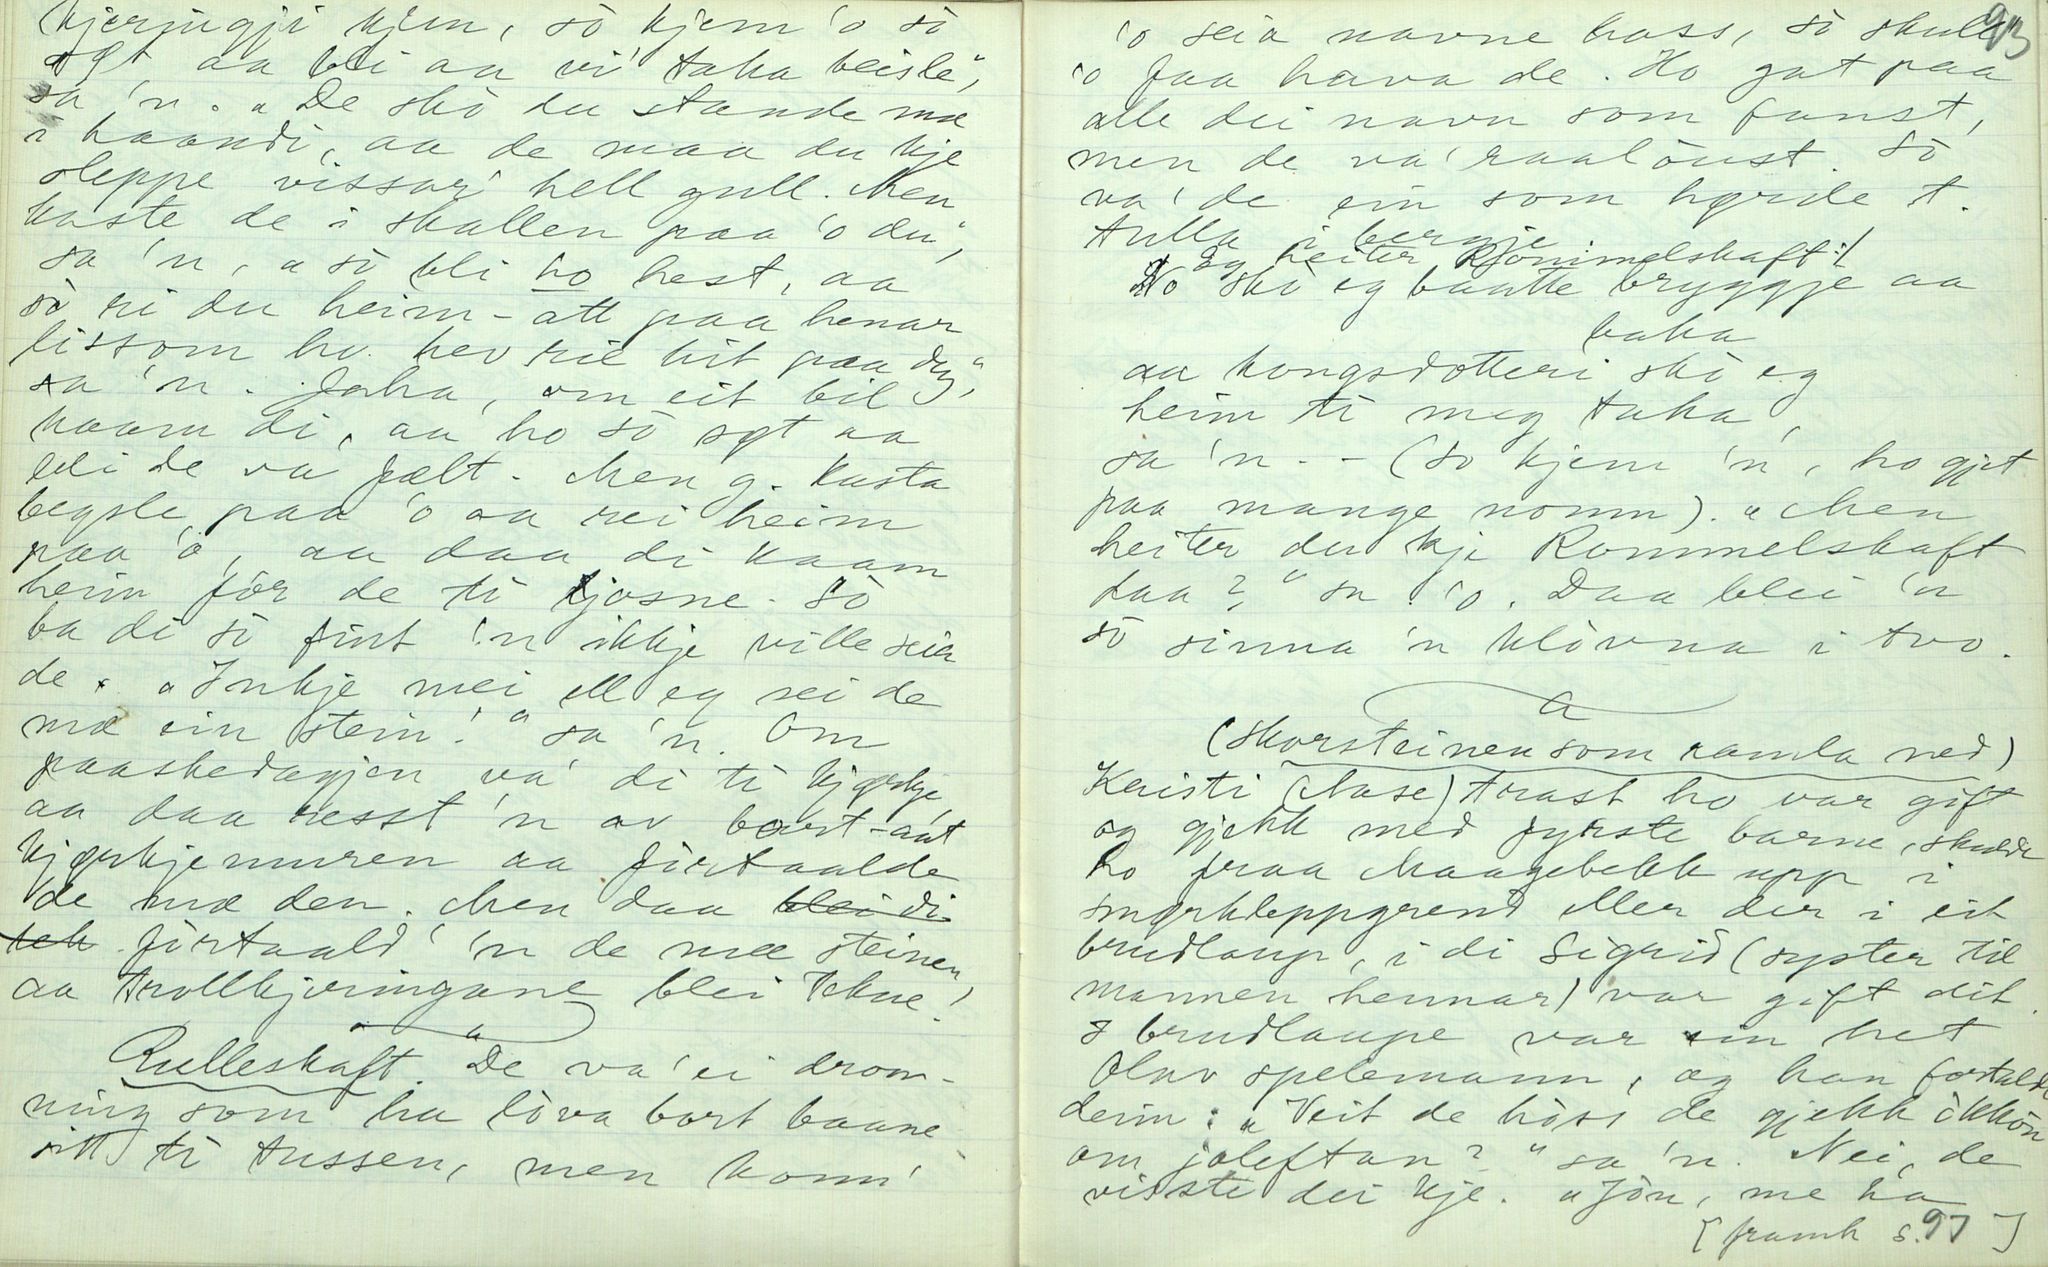 kjerjugji kjem, sò kjem 'o sò
sgt aa bli aa vi' taka beisle",
sa 'n. „De skò du stande mæ
i haandi, aa de maa du kje
sleppe vissar' hell gull. Men
kaste de i skallen paa 'o du",
sa 'n, „sò bli ho hest, aa
sò ri du heim-att paa henar
lissom ho hev rie hit paa deg",
sa 'n. Jaha, om eit bil
kaam di, aa ho sò sgt aa
bli de va' fælt. Men g. kasta
begsle paa 'o aa rei heim
paa 'o, aa daa di kaam
heim fòr de ti fjosne. Sò
ba di sò fint 'n ikkje ville seia
de. „Inkje mei ell eg sei de
mæ ein stein!" sa 'n. Om
paaskedagjen va' di ti kjørkje
aa daa resst 'n av bart-aat
kjørkjemuren aa fòrtaalde
de mæ den. Men daa blei di
teh fòrtaald' 'n de mæ steinen
aa trollkjeringane blei tekne!
Rulleskaft. De va' ei dron-
ning som ha lòva bort baane
sitt ti tussen, men konn'
93
'o seia navne hass, sò skulle
'o faa hava de. Ho gat paa
alle dei navn som fanst,
men de va' raalòust. Sò
va' de ein som hørde t.
tulla i bergje:
Eg heiter Rommelskaft!
No skò eg baatte bryggje aa
baka
aa kongsdotteri skò eg
heim ti meg taka,
sa 'n. - (So kjem 'n, ho gjet
paa mange nomn). „Men
heiter du kje Rommelskaft
daa?" sa 'o. Daa blei 'n
sò sinna 'n klòvna i tvo.
(Skorsteinen som ramla ned)
Kristi (Aase) Trast ho var gift
og gjekk med fyrste barne, skulde
ho fraa Haagebekk upp i
Smørkleppgrend eller der i eit
brudlaup, i di Sigrid (syster til
mannen hennar) var gift dit.
I brudlaupe var ein het
Olav spelemann, og han fortalde
deim: „Veit de hòss de gjekk òkkòn
om joleftan?" sa 'n. Nei, de
visste dei kje. „Jòu, me ha
[framh s. 97]